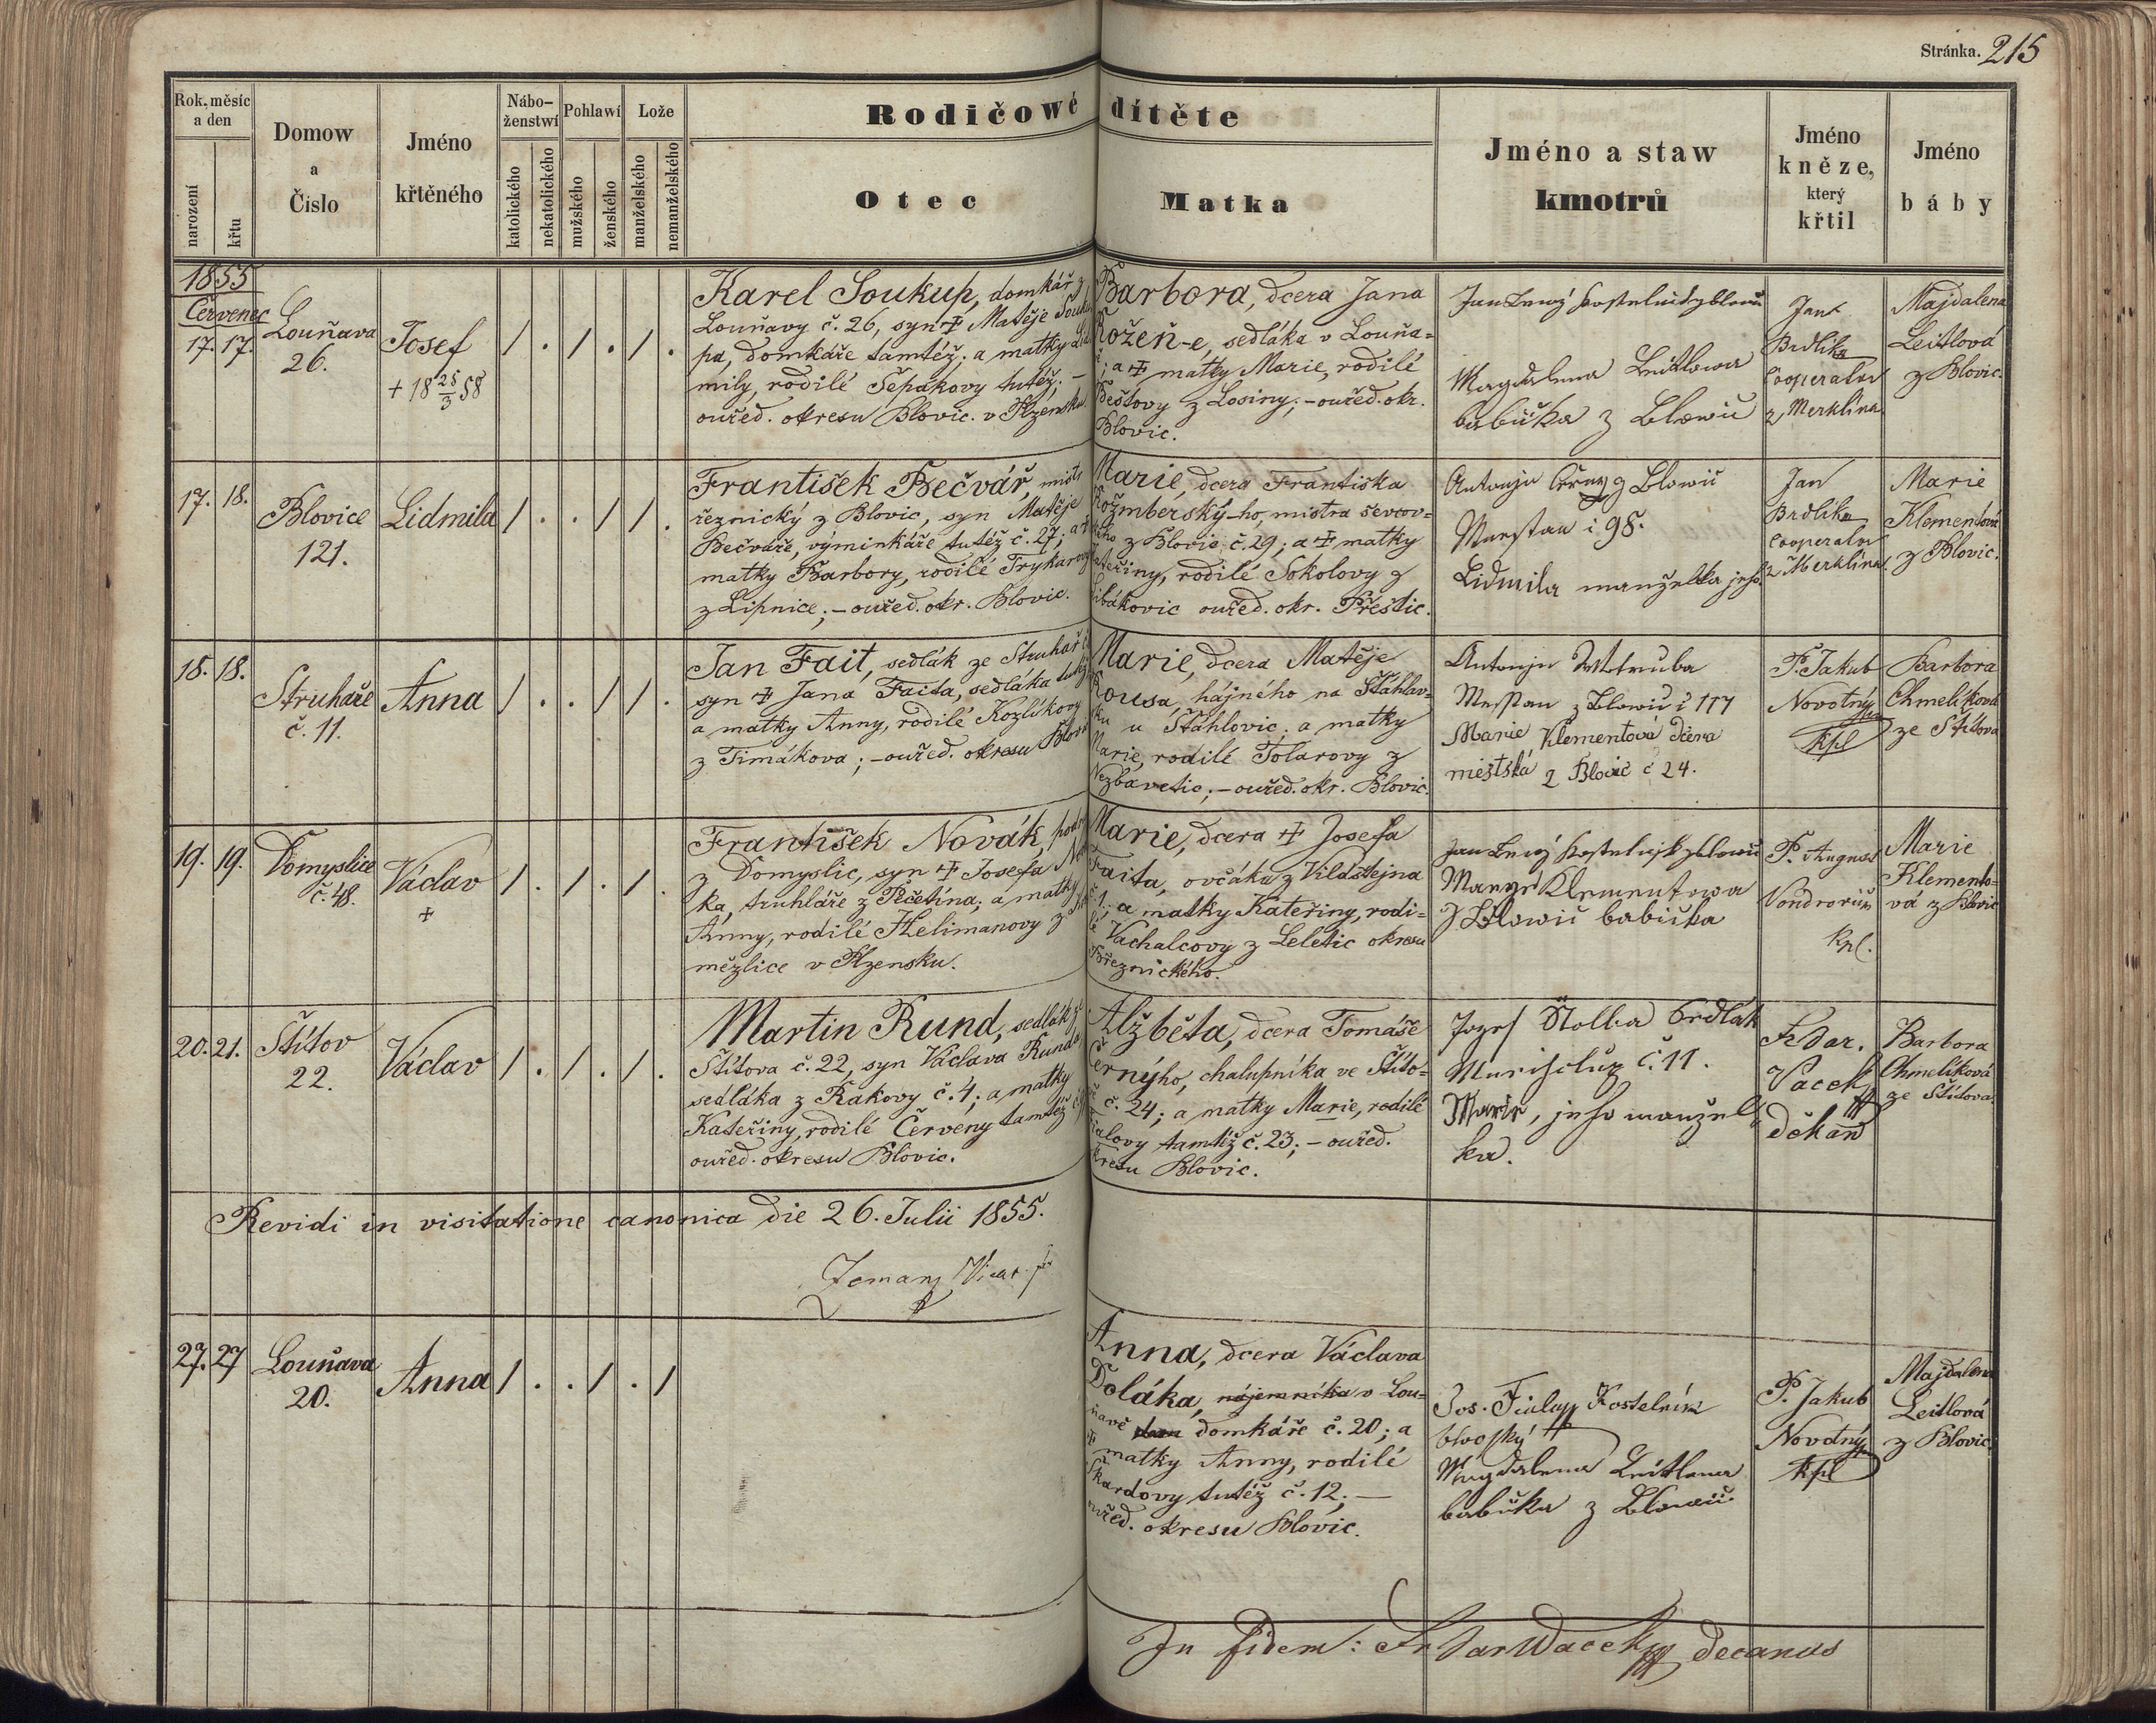 Stránka. 215
Rok, měsíc
a den
narození
křtu
Domow
a
Čislo
Jméno
křtěného
Nábo-
ženstwí
katolického
nekatolického
Pohlawí
mužského
ženského
Lože
manželského
nemanželského
Rodičowé dítěte
Otec
Matka
Jméno a staw
kmotrů
Jméno
kněze,
který
křtil
Jméno
báby
1855
Červenec
17. 17.
Louňava
26.
Josef
+ 18 25/3 58
/ . / . / .
Karel Soukup, domkář z
Louňavy č. 26, syn + Matěje Souku
pa, domkáře tamtéž; a matky Lid
mily, rodilé Šepákovy tutéž; —
ouřed. okresu Blovic. v Plzensku.
Barbora, dcera Jana
Rožeň-e, sedláka v Louňa=
; a + matky Marie, rodilé
z Losiny; – ouřed. okr.
Blovic.
Jan Lewý kostelník z Blowic
Magdalena Leitlowa
babička z Blowic
Jan
Brdlika
Cooperator
z Merklína
Majdalena
Leitlová
z Blovic.
17. 18.
Blovice
121.
Lidmila
/ . . / / .
František Bečvář, mistr
řeznický z Blovic, syn Matěje
Bečváře, výminkáře tutéž č. 27; a +
matky Barbory, rodilé Trykarovy
z Lipnice; – ouřed. okr. Blovic.
Marie, dcera Františka
Rožmberský-ho, mistra ševcov=
ského z Blovic č. 29; a + matky
Kateřiny, rodilé Sokolovy z
Libákovic ouřed. okr. Přeštic.
Antonjn Černy z Blowic
Messtan č 98.
Lidmila manželka jeho
Jan
Brdlika
Cooperator
z Merklína
Marie
Klementová
z Blovic.
18. 18.
Struhaře
č. 11.
Anna
/ . . / / .
Jan Fait, sedlák ze Struhař č
syn + Jana Faita, sedláka tutéž
a matky Anny, rodilé Kozlíkovy
z Timákova; – ouřed. okresu Blovic
Marie, dcera Matěje
Kousa, hájného na Štáhlav=
sku u Štáhlovic; a matky
Marie, rodilé Tolarovy z
Nezbavetic; – ouřed. okr. Blovic.
Antonjn
Messtan z Blowic č 117
Marie Klementová dcera
městská z Blovic č 24.
P. Jakub
Novotný
Kpl
Barbora
Chmelíková
ze Štítova
19. 19.
Domyslice
č. 48.
Václav
+
/ . / . / .
František Novák, podr
z Domyslic, syn + Josefa No
ka, truhláře z Pěčetína; a matky
Anny, rodilé Helimanovy z
měžlice v Plzensku.
Marie, dcera + Josefa
Faita, ovčáka z Vildštejna
č. 1; a matky Kateřiny, rodi=
lé Vachalcovy z Leletic okresu
Březnického.
Jan Lewý kostelnjk z Blowic
Marye Klementowa
z Blowic babička
P. August
Kpl.
Marie
Klemento=
vá z Blovic
20. 21.
Štítov
22.
Václav
/ . / . / .
Martin Rund, sedlák ze
Štítova č. 22, syn Václava Runda,
sedláka z Rakovy č. 4; a matky
Kateřiny, rodilé Červeny tamtéž
ouřed. okresu Blovic.
Alžběta, dcera Tomáše
Černýho, chalupníka ve Štíto=
vě č. 24; a matky Marie, rodilé
Fialovy tamtéž č. 23; – ouřed.
okresu Blovic.
Jozef Stolba Sedlak
č. 11.
Marie, jeho manžel=
ka.
Fr Dar.
Vacek
děkan
Barbora
Chmelíková
ze Štítova.
Revidi in visitatione canonica die 26. Julii 1855.
Zeman, Vicar.
27. 27
Louňava
20.
Anna
/ . . / . /
Anna, dcera Václava
Doláka, nájemníka v Lou=
ňavě domkáře č. 20; a
+ matky Anny, rodilé
Škardovy tutéž č. 12; —
ouřed. okresu Blovic.
Jos. Fiala Kostelník
blovský
Magdalena Leitlowa
babička z Blowic
P. Jakub
Novotný
Kpl
Majdalena
Leitlová
z Blovic.
In fidem: Fr Dar Wacek decanus